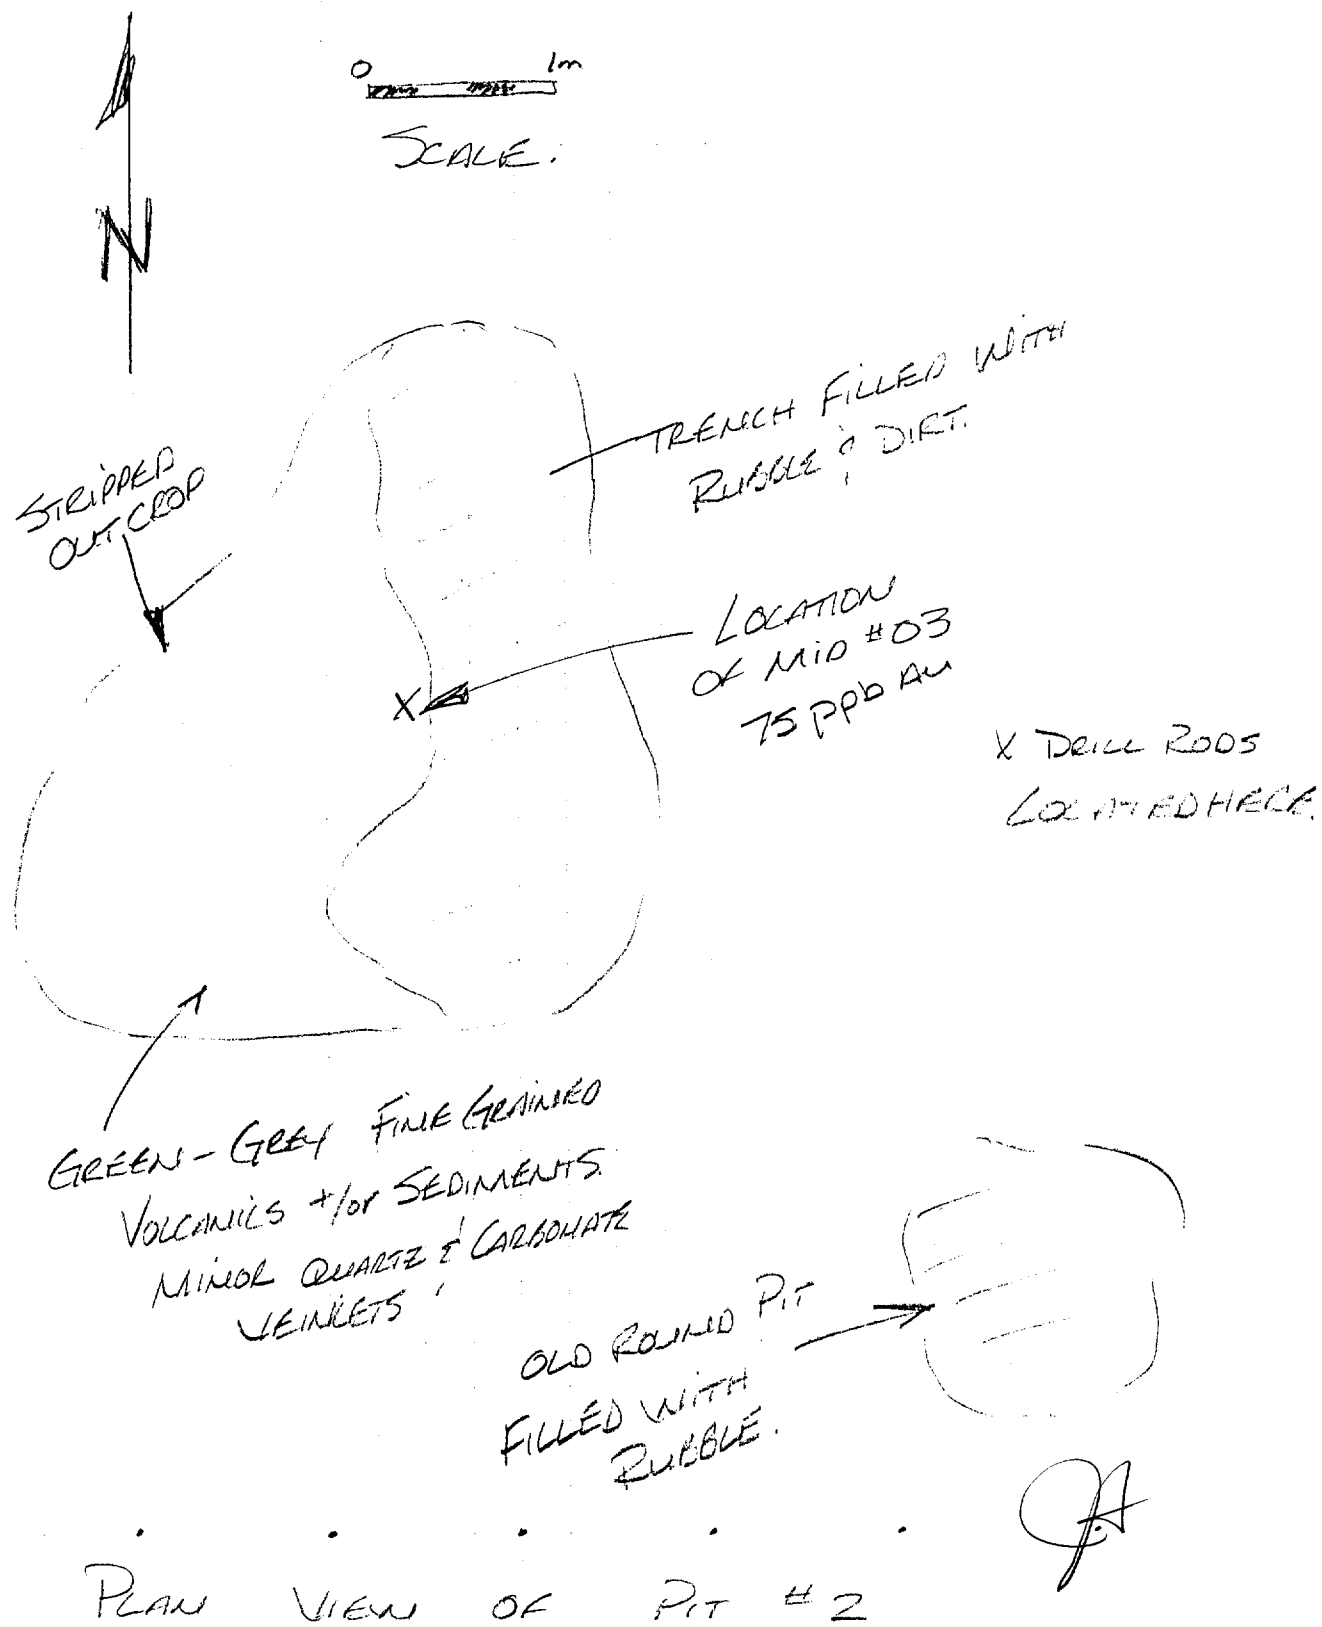 0 1m
SCALE.
N
TRENCH FILLED WITH
RUBBLE & DIRT.
STRIPPED
OUTCROP
LOCATION
OF MID #03
75 ppb Au
X
X DRILL RODS
LOCATED HERE.
GREEN-GREY FINE GRAINED
VOLCANICS +/or SEDIMENTS.
MINOR QUARTZ & CARBONATE
VEINLETS
OLD ROUND PIT
FILLED WITH
RUBBLE.
PLAN VIEW OF PIT #2